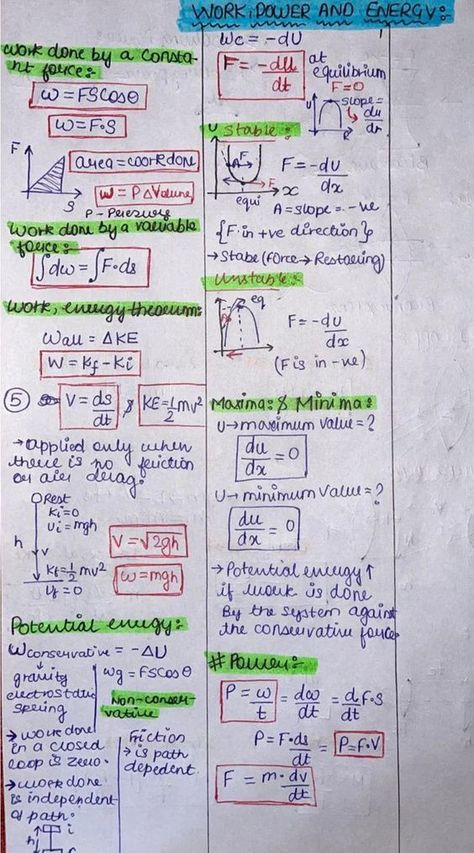 WORK, POWER AND ENERGY:
Work done by a consta-
nt force:-
W = FS cosθ
W = F·S
F
area = workdone
W = PΔVolume
S
P -
Work done by a variable
force:-
∫dw = ∫F·ds
Work, energy theorem:
Wall = ΔKE
W = Kf - Ki
5
V = ds/dt & KE = 1/2 mv²
→ applied only when
there is no friction
or air drag.
Rest
Ki = 0
Ui = mgh
h
v
V = √2gh
Kf = 1/2 mv²
Uf = 0
W = mgh
Potential energy:
Wconservative = -ΔU
gravity
electrostatic
spring
Wg = FS cosθ
Non-conser-
vative
→ work done
in a closed
loop is zero.
→ work done
is independent
of path:
i
h
Friction
→ is path
depedent
Wc = -dU
F = -dU/dt
at
equilibrium
F = 0
U
slope =
du/dr
R
U
Stable:
F
A
F
x
equi
F = -dU/dx
A = slope = -ve
{F in +ve direction}
→ Stabe (force → Restoring)
Unstable:
eq
F = -dU/dx
(F is in -ve)
Maxima: & Minima:
U → maximum value = ?
du/dx = 0
U → minimum value = ?
du/dx = 0
→ Potential energy ↑
if work is done
By the system against
the conservative force.
# Power:-
P = w/t = dw/dt = d/dt F·S
P = F·ds/dt = P = F·V
F = m·dv/dt